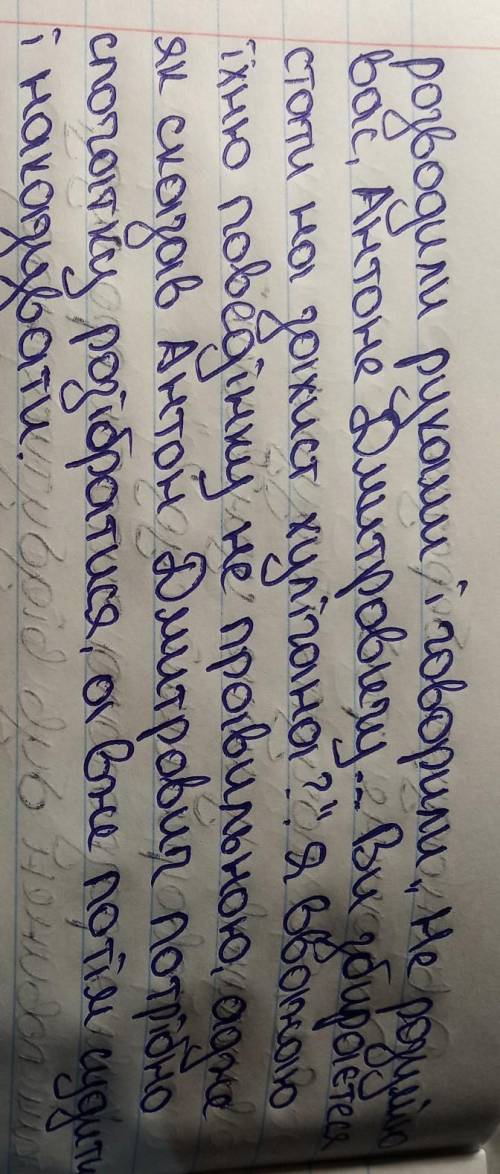 розводили руками і говорили „Не розумію
вас, Антоне Дмитровичу... Ви збираєтеся
стати на захист хулігана?". Я вважаю
їхню поведінку не правильною, адже
як сказав Антон Дмитрович потрібно
спочатку розібратися, а вже потім судити
і наказувати.